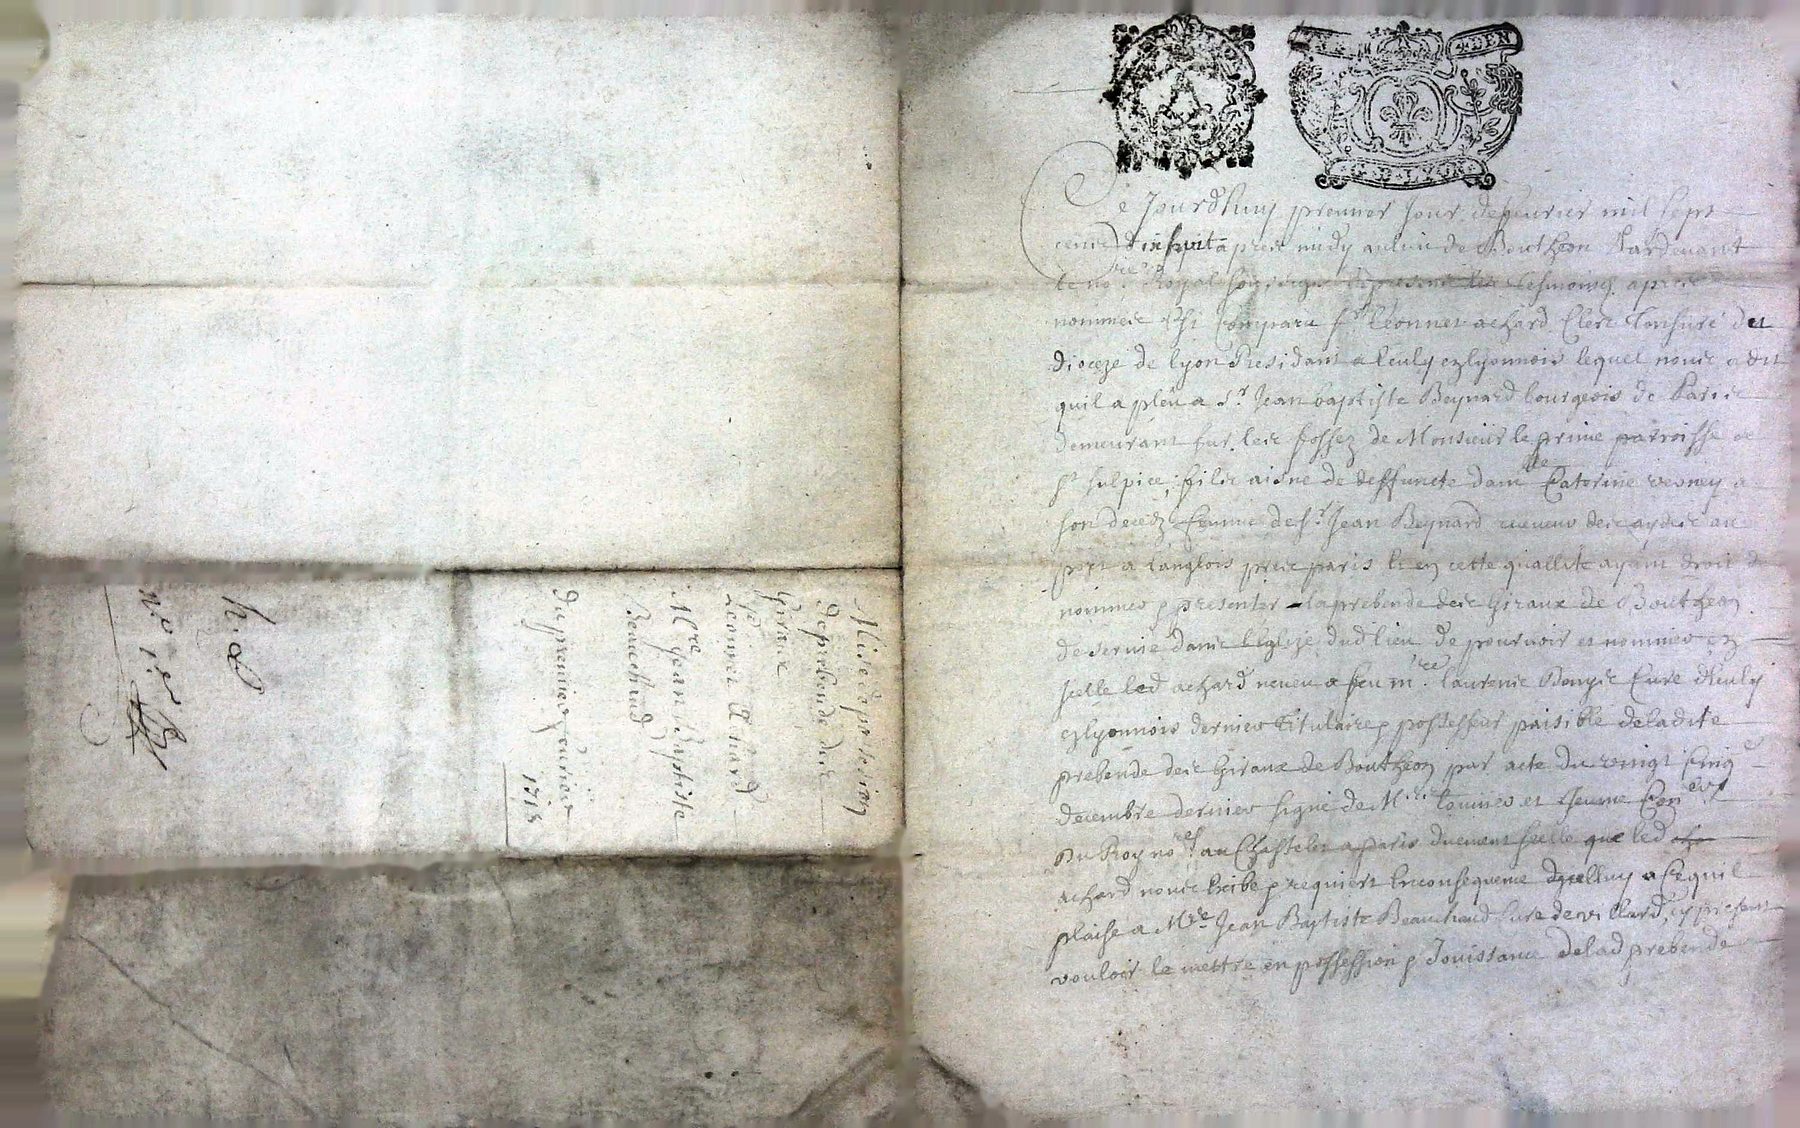 G. D. LYON
Ce Jourdhuy premier Jour de feurier mil sept
cens dixhuit apres midy au lieu de Bouthéon Pardeuant
le no.re Royal soussigné & presens les tesmoins apres
nommes est Comparu sr. Leonnet achard Clerc tonsuré du
dioceze de lyon Residant a leuly ez lyonnois lequel nous a dit
quil a pleu a Sr. Jean baptiste Beynard bourgeois de Paris
demeurant sur les fossez de Monsieur le prince parroisse de
St sulpice, fils aisne de deffuncte dam.lle Caterine verney a
son decedz femme de sr. Jean Beynard receueur des aydes au
port a Langlois pres paris et en cette quallité ayant droit de
nommer & presenter a la prebende des Giraux de Bouthéon
deseruie dans Leglize dud lieu de pouruoir et nommer en
Icelle led achard neueu a feu m.re laurens Cure
ez lyonnois dernier titulaire & possesseur paisible de ladite
prebende des Giraux de Bouthéon par acte du vingt cinq
decembre dernier signé de et Con.ers
Du Roy no.res au Chastelet a paris duement scelle que led
achard nous exibe & requiert En consequence dycelluy a Ce quil
plaise a M.re Jean Baptiste Beauchaud Cure de villard, cy present
vouloir le mettre en possession & Jouissance de lad prebende
Mise de possession
de prebende des
Giraux
Sr Leonnet Achard
M.re Jean Baptiste
Beauchaud
du premier feurier
1718